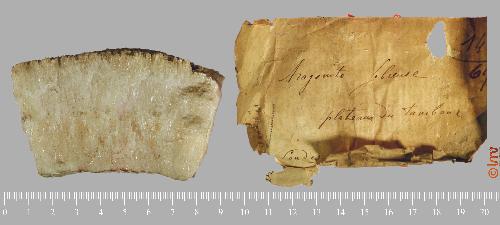 Aragonite fibreuse
plateau du tambour
14
64
0 1 2 3 4 5 6 7 8 9 10 11 12 13 14 15 16 17 18 19 20